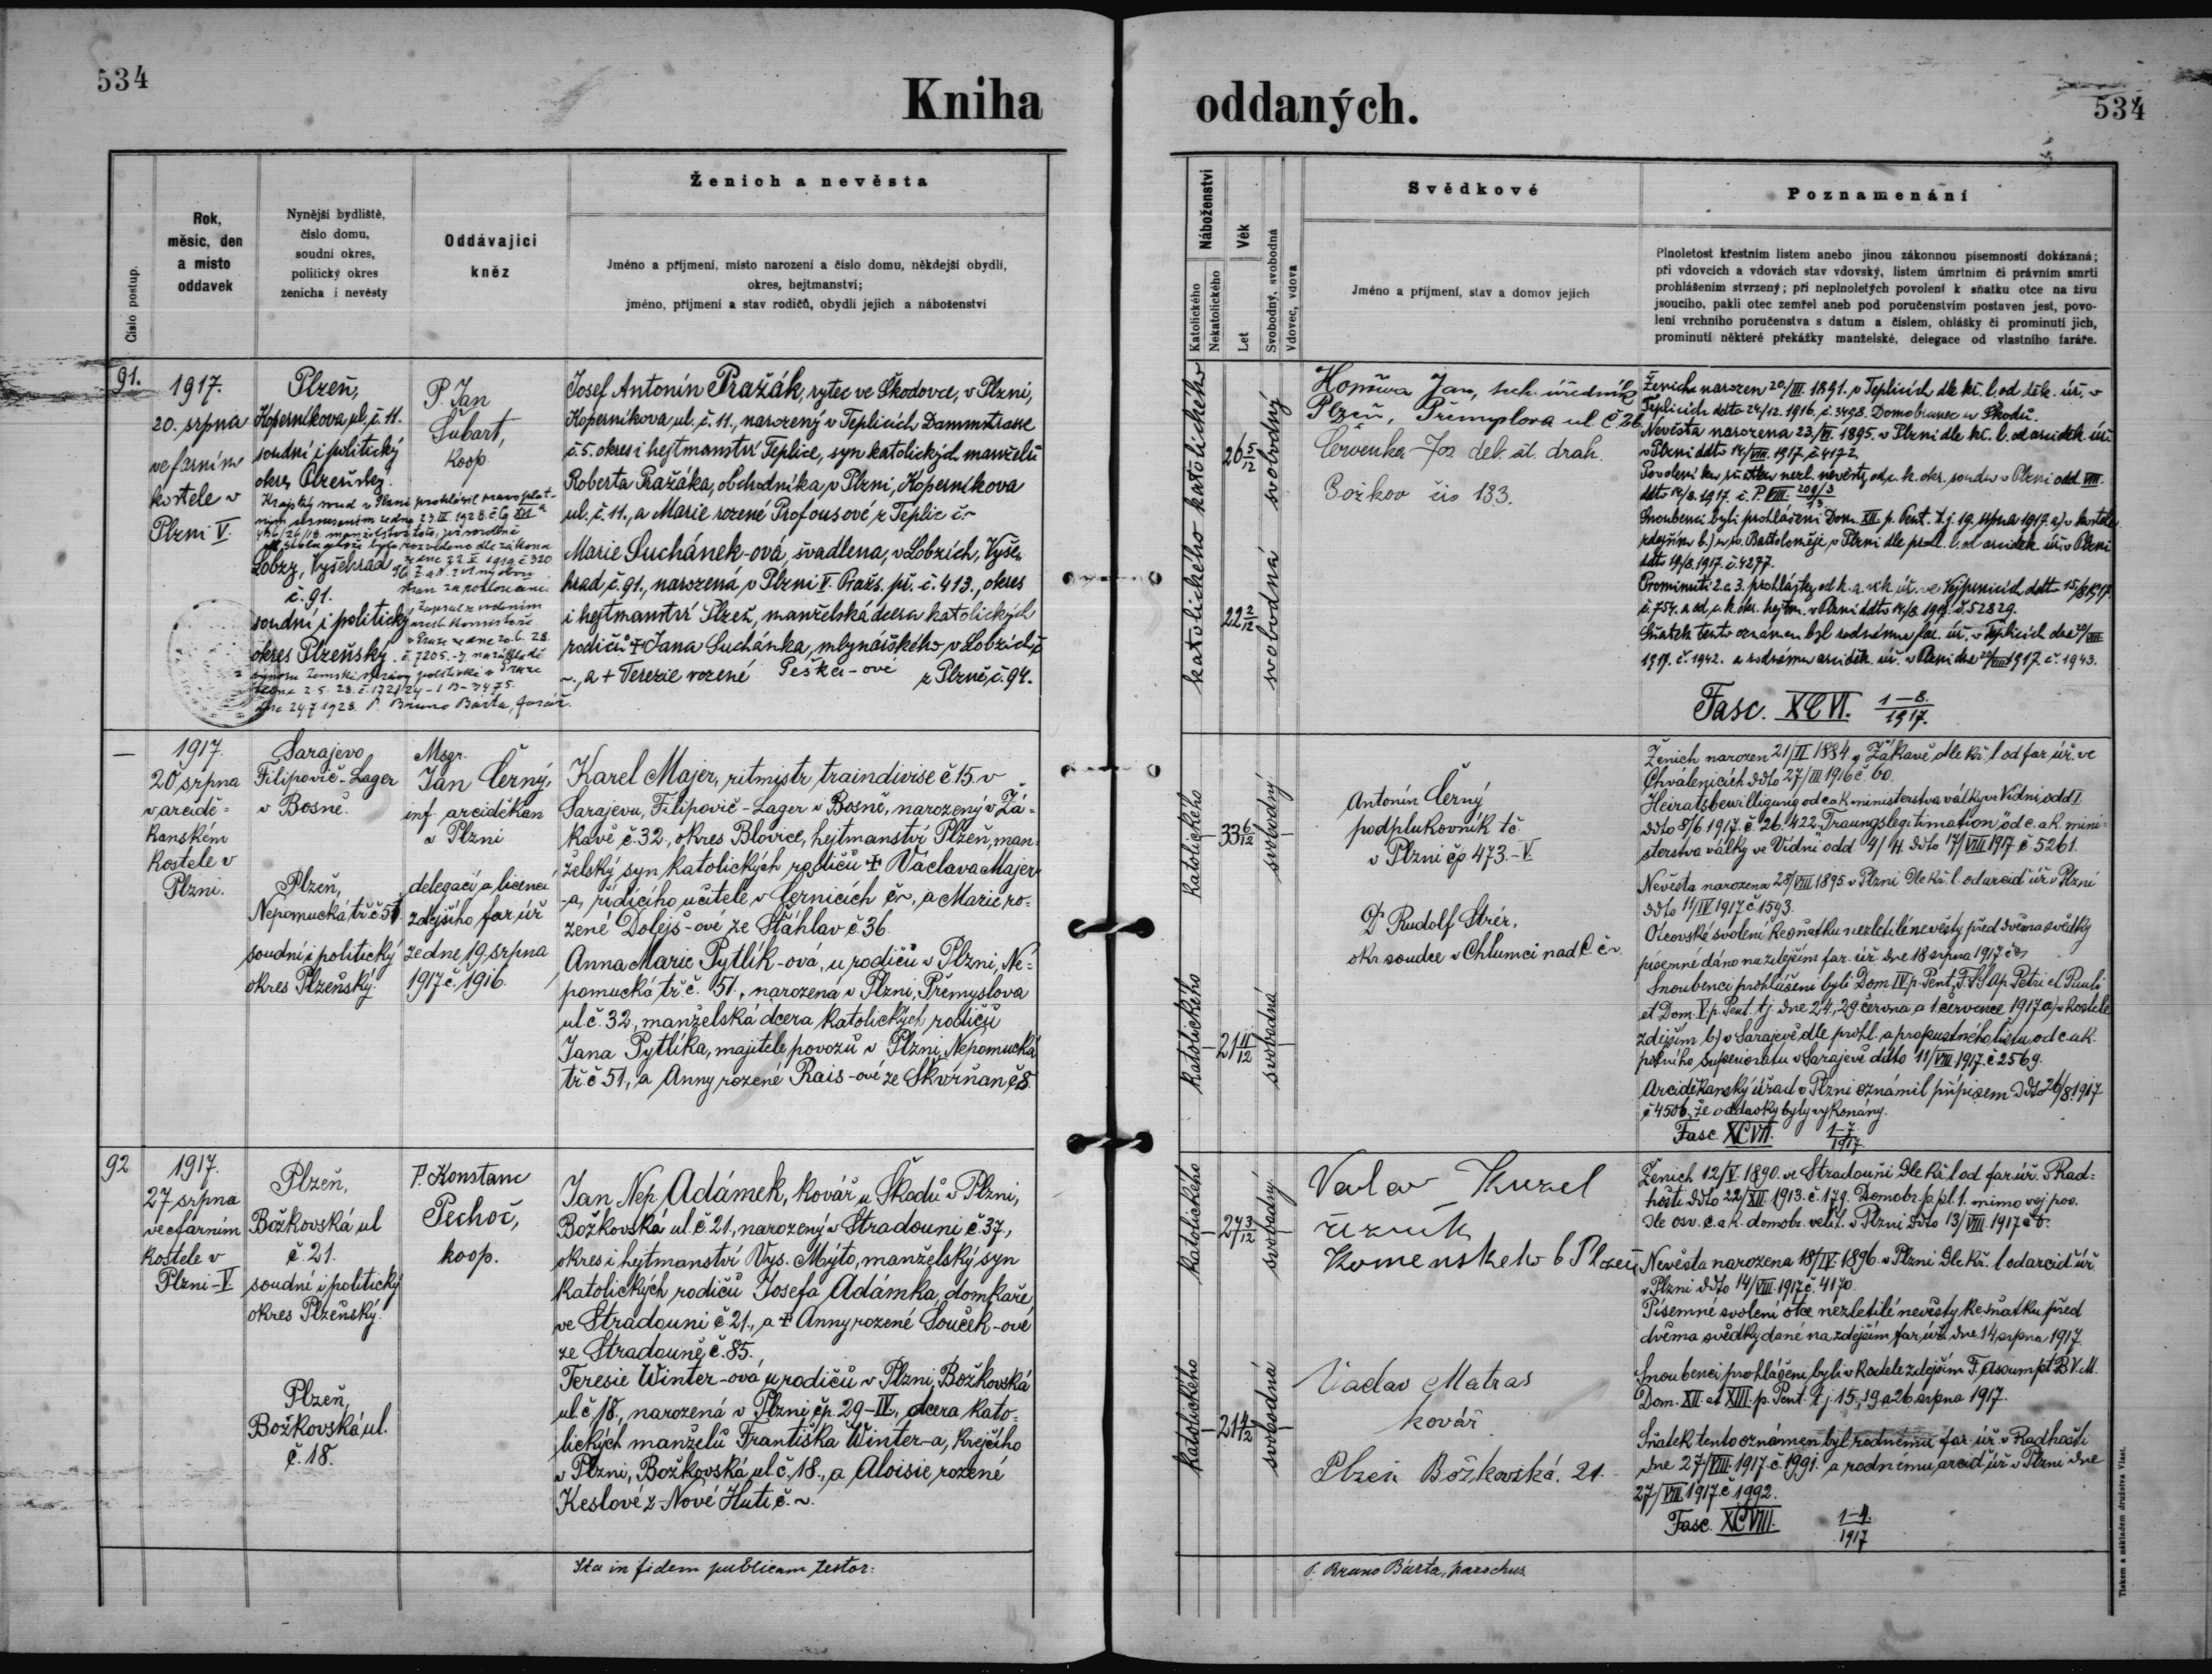 534
Kniha
oddaných.
534
Číslo postup.
Rok,
měsíc, den
a místo
oddavek
Nynější bydliště,
číslo domu,
soudní okres,
politický okres
ženicha i nevěsty
Oddávající
kněz
Ženich a nevěsta
Jméno a příjmení, místo narození a číslo domu, někdejší obydlí,
okres, hejtmanství;
jméno, příjmení a stav rodičů, obydlí jejich a náboženství
Náboženství
Katolického
Nekatolického
Věk
Let
Svobodný, svobodná
Vdovec, vdova
Svědkové
Jméno a příjmení, stav a domov jejich
Poznamenání
Plnoletost křestním listem anebo jinou zákonnou písemností dokázaná;
při vdovcích a vdovách stav vdovský, listem úmrtním či právním smrti
prohlášením stvrzený; při neplnoletých povolení k sňatku otce na živu
jsoucího, pakli otec zemřel aneb pod poručenstvím postaven jest, povo-
lení vrchního poručenstva s datum a číslem, ohlášky či prominutí jich,
prominutí některé překážky manželské, delegace od vlastního faráře.
91.
1917.
20. srpna
ve farním
kostele v
Plzni V.
Plzeň,
Koperníkova ul. č. 11.
soudní i politický
okres Plzeňský.
Krajský soud v Plzni prohlásil pravoplat-
Lobzy, Vyšehrad
č. 91.
soudní i politický
okres Plzeňský
dne 24.7.1928. P. Bruno Bárta, farář.
P. Jan
Šubart,
koop.
Josef Antonín Pražák, rytec ve Škodovce, v Plzni,
Koperníkova ul. č. 11., narozený v Teplicích Dammstrasse
č. 5. okres i hejtmanství Teplice, syn katolických manželů
Roberta Pražáka, obchodníka, v Plzni, Koperníkova
ul. č. 11., a Marie rozené Profousové z Teplic č. ~
Marie Suchánek-ová, švadlena, v Lobzích, Vyše-
hrad č. 91., narozená v Plzni V. Praž. př. č. 413., okres
i hejtmanství Plzeň, manželská dcera katolických
rodičů + Jana Suchánka, mlynářského v Lobzích č.
~., a + Terezie rozené Peška-ové z Plzně, č. 94.
katolického
26 5/12
svobodný
katolického
22 2/12
svobodná
Jan, tech. úředník
Plzeň, Přemyslova ul. č 26.
Červenka Jos. děl. st. drah.
Božkov čís 133.
Ženich narozen 20./III. 1891. v Teplicích dle kř. l. od děk. úř. v
Teplicích ddto 24/12. 1916. č. 3498. Domobranec u Škodů.
Nevěsta narozena 23./VI. 1895. v Plzni dle kř. l. od arciděk. úř.
v Plzni ddto 14./VIII. 1917. č. 4172.
Povolení ku sňatku nezl. nevěsty od c. k. okr. soudu v Plzni odd. VIII.
ddto 14/8. 1917. č. P. VIII. 209/3
Snoubenci byli prohlášeni Dom. XII. p. Pent. t. j. 19. srpna 1917. a) v kostele
zdejším b.) u sv. Bartoloměje v Plzni dle prohl. l. od arciděk. úř. v Plzni
ddto 19/8. 1917. č. 4277.
č. 754. a od c. k. okr. hejtm. v Plzni ddto 14/8. 1917. č. 52829.
Sňatek tento oznámen byl rodnému far. úř. v Teplicích dne 20/VIII
1917. č. 1942. a rodnému arciděk. úř. v Plzni dne 20/VIII 1917. č. 1943.
Fasc. XCVI. 1–8./1917.
—
1917.
20 srpna
v arcidě-
kanském
kostele v
Plzni.
Sarajevo
Filipovič-Lager
v Bosně.
Plzeň,
Nepomucká tř. č 51
soudní i politický
okres Plzeňský.
Msgr.
Jan Černý,
inf. arciděkan
v Plzni
delegací a licencí
zdejšího far. úř
ze dne 19. srpna
1917 č. 1916.
Karel Majer, ritmistr traindivise č 15. v
Sarajevu, Filipovič-Lager v Bosně, narozený v Žá-
kavě č. 32., okres Blovice, hejtmanství Plzeň, man-
želský syn katolických rodičů + Václava Majer
-a, řídícího učitele v Černicích č~, a Marie ro-
zené Dolejš-ové ze Šťáhlav č. 36.
Anna Marie Pytlík-ová, u rodičů v Plzni, Ne-
pomucká tř. č. 51., narozená v Plzni, Přemyslova
ul č. 32., manželská dcera katolických rodičů
Jana Pytlíka, majitele povozů v Plzni, Nepomucká
tř. č 51., a Anny rozené Rais-ové ze Skvrňan, č 8.
katolického
33 6/12
svobodný
katolického
21 11/12
svobodná
Antonín Černý
podplukovník tč.
v Plzni čp. 473.-V.
Dr Rudolf Strér,
okr. soudce v Chlumci nad C. č~.
Ženich narozen 21/II 1884 v Žákavě, dle kř. l od far. úř. ve
Chválenicích ddto 27/III 1916 č 60.
Heiratsbewilligung od c a k ministerstva války ve Vídni odd I.
ddto 8/6 1917. č. 26.422. "Traungslegitimation" od c. a k. mini-
sterstva války ve Vídni odd 4/H. ddto 17/VIII 1917 č. 5261.
Nevěsta narozena 28/VIII 1895. v Plzni dle kř. l. od arcid úř v Plzni
ddto 11/IV 1917 č 1593.
Otcovské svolení ke sňatku nezletilé nevěsty před dvěma svědky
písemně dáno na zdejším far. úř. dne 18 srpna 1917 č~
Snoubenci prohlášeni byli Dom IV p. Pent., F. SS Ap. Petri et Pauli
et Dom. V p. Pent. t. j. dne 24., 29. června a 1. července 1917 a) v kostele
zdejším b) v Sarajevě dle prohl. a propustného listu od c. a k.
polního Superioratu v Sarajevě ddto 11/VIII 1917. č 2569.
Arciděkanský úřad v Plzni oznámil přípisem ddto 26/8 1917
č 4506, že oddavky byly vykonány.
Fasc. XCVII. 1–7/1917.
92
1917.
27 srpna
ve farním
kostele v
Plzni-V
Plzeň,
Božkovská ul
č. 21.
soudní i politický
okres Plzeňský.
Plzeň,
Božkovská ul.
č. 18.
P. Konstanc
Pechoč,
koop.
Jan Nep. Adámek, kovář u Škodů v Plzni,
Božkovská ul. č 21., narozený v Stradouni č 37.,
okres i hejtmanství Vys. Mýto, manželský syn
katolických rodičů Josefa Adámka, domkaře
ve Stradouni č 21., a + Anny rozené Souček-ové
ze Stradouně, č. 85.
Teresie Winter-ová u rodičů v Plzni, Božkovská
ul. č 18., narozená v Plzni čp. 29-IV., dcera kato-
lických manželů Františka Winter-a, krejčího
v Plzni, Božkovská ul. č. 18., a Aloisie rozené
Keslové z Nové Huti č. ~.
katolického
27 3/12
svobodný
katolického
21 4/12
svobodná
Kuzel
řezník
Komenskeho 6 Plzeň
Václav Matras
kovář
Plzeň Božkovská. 21.
Ženich 12/V. 1890. ve Stradouni dle kř. l od far. úř. v Rad-
hošti ddto 22/XII. 1913. č. 179. Domobr. p. pl. 1. mimo voj. pov.
dle osv. c. a k. domobr. velit. v Plzni ddto 13/VIII 1917 č 6.
Nevěsta narozena 18/IV. 1896. v Plzni dle kř. l od arcid úř
v Plzni ddto 14/VIII. 1917 č. 4170.
Písemné svolení otce nezletilé nevěsty ke sňatku před
dvěma svědky dané na zdejším far. úřě dne 14 srpna 1917.
Snoubenci prohlášeni byli v kostele zdejším F. Assumpt. B.V.M.
Dom. XII. et XIII. p. Pent. t. j. 15., 19. a 26. srpna 1917.
Sňatek tento oznámen byl rodnému far. úř. v Radhošti
dne 27/VIII. 1917. č. 1991. a rodnému arcid. úř v Plzni dne
27/VIII. 1917 č. 1992.
Fasc. XCVIII. 1–4./1917
Ita in fidem publicam testor:
P. Bruno Bárta, parochus
Tiskem a nákladem družstva Vlast.